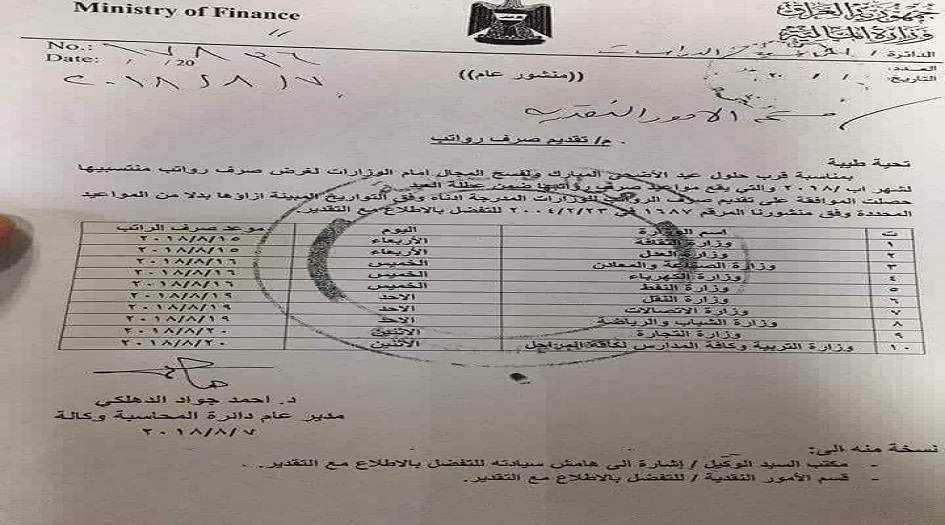 Ministry of Finance
جمهورية العراق
وزارة المالية
No.:
Date: / /20
٢٠١٨/٨/٧
الدائرة /
العدد:
التاريخ: / / ٢٠
((منشور عام))
م/ تقديم صرف رواتب
تحية طيبة
بمناسبة قرب حلول عيد الأضحى المبارك ولفسح المجال امام الوزارات لغرض صرف رواتب منتسبيها
لشهر اب /٢٠١٨ والتي يقع مواعد صرف رواتبها ضمن عطلة العيد
حصلت الموافقة على تقديم صرف الرواتب للوزارات المدرجة ادناه وفق التواريخ المبينة ازاؤها بدلا من المواعيد
المحددة وفق منشورنا المرقم ١٩٨٧ في ٢٠٠٤/٢/٢٣ للتفضل بالاطلاع مع التقدير.
ت اسم الوزارة اليوم موعد صرف الراتب
١ وزارة الثقافة الأربعاء ٢٠١٨/٨/١٥
٢ وزارة العدل الأربعاء ٢٠١٨/٨/١٥
٣ وزارة الصناعة والمعادن الخميس ٢٠١٨/٨/١٦
٤ وزارة الكهرباء الخميس ٢٠١٨/٨/١٦
٥ وزارة النفط الخميس ٢٠١٨/٨/١٦
٦ وزارة النقل الاحد ٢٠١٨/٨/١٩
٧ وزارة الاتصالات الاحد ٢٠١٨/٨/١٩
٨ وزارة الشباب والرياضة الاحد ٢٠١٨/٨/١٩
٩ وزارة التجارة الأثنين ٢٠١٨/٨/٢٠
١٠ وزارة التربية وكافة المدارس لكافة المراحل الأثنين ٢٠١٨/٨/٢٠
د. احمد جواد الدهلكي
مدير عام دائرة المحاسبة وكالة
٢٠١٨/٨/٧
نسخة منه الى:
- مكتب السيد الوكيل / إشارة الى هامش سيادته للتفضل بالاطلاع مع التقدير.
- قسم الأمور النقدية / للتفضل بالاطلاع مع التقدير.